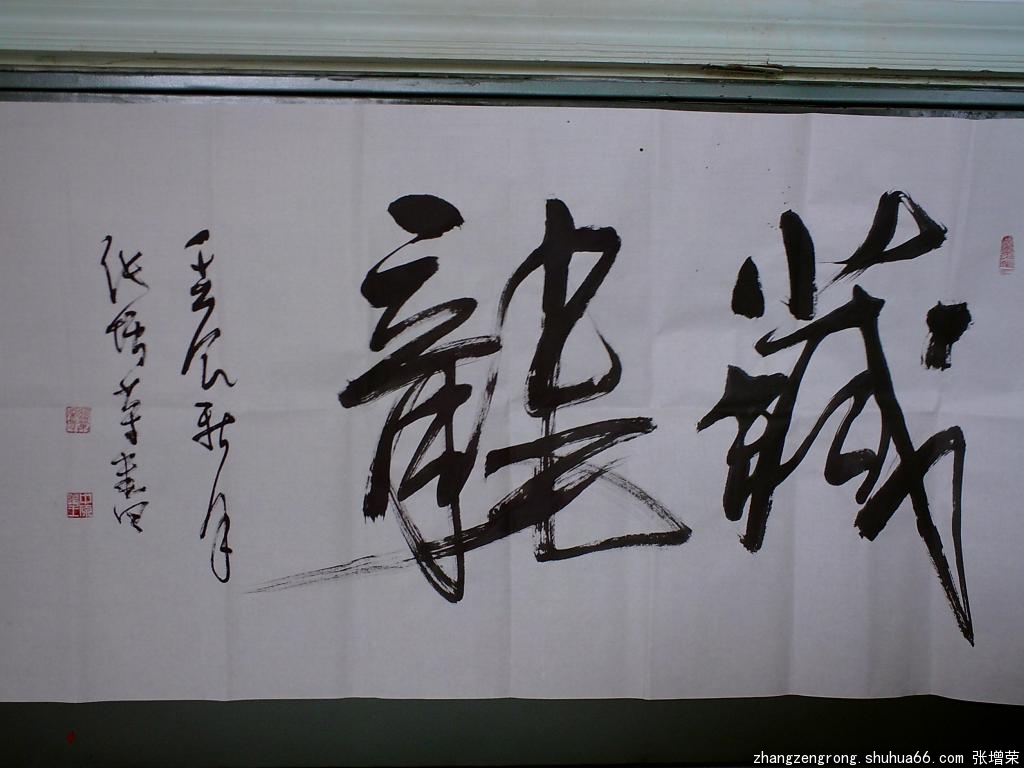 藏龍
壬辰秋月
张增荣书
zhangzengrong.shuhua66.com 张增荣